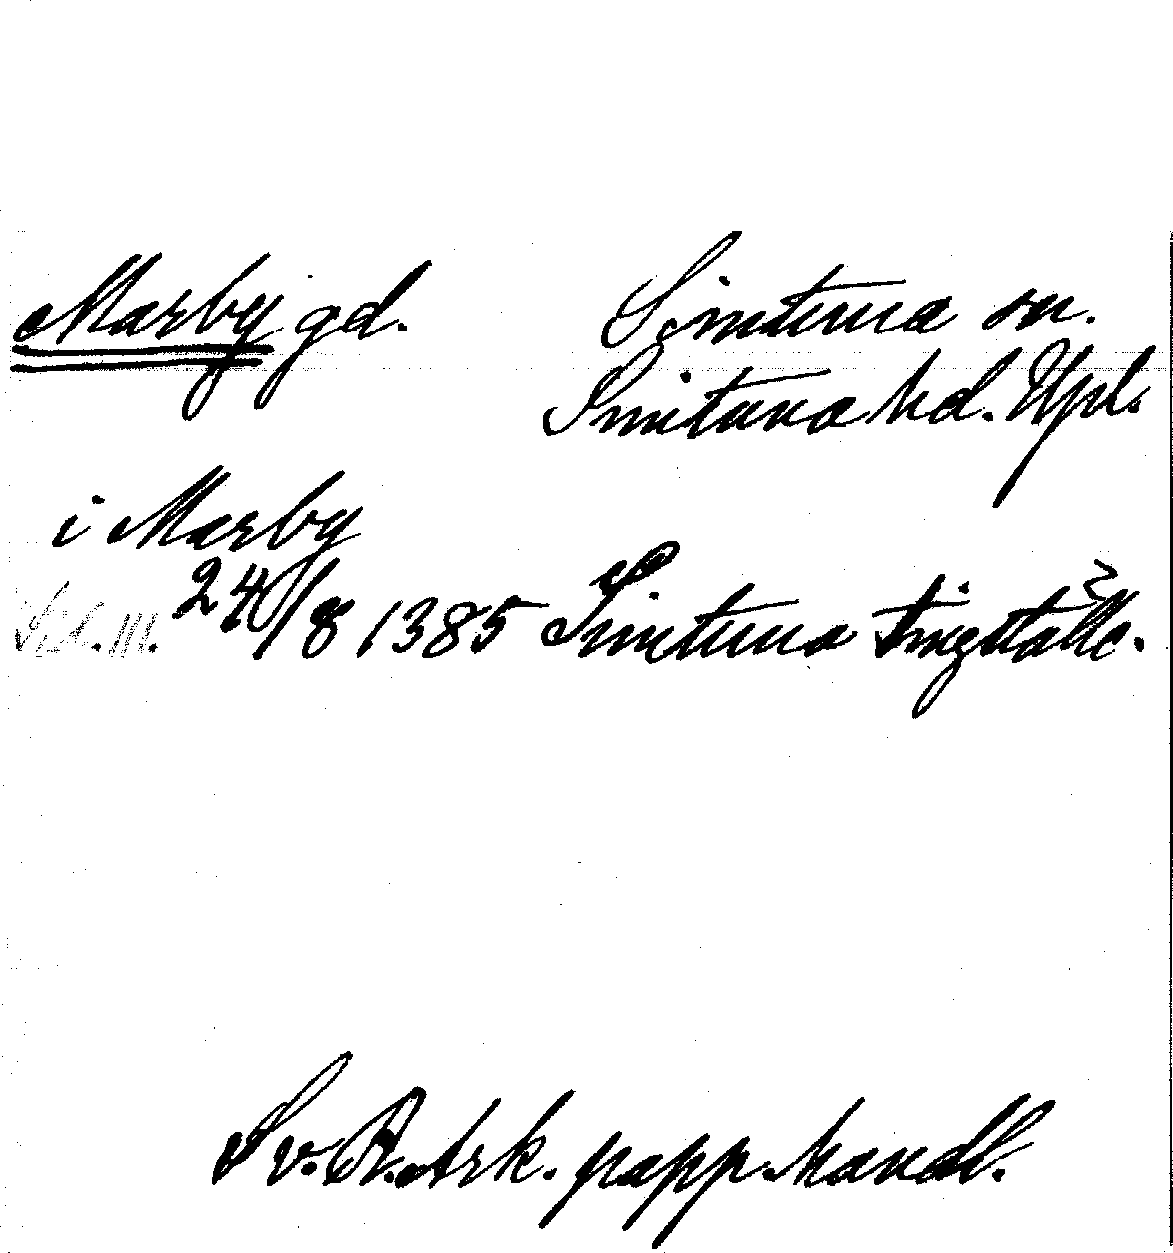 Marby gd. Simtuna sn.
Simtuna hd. Upl.
i Marby
24/8 1385 Simtuna tingställe.
Sv. R. Ark. papp. handl.